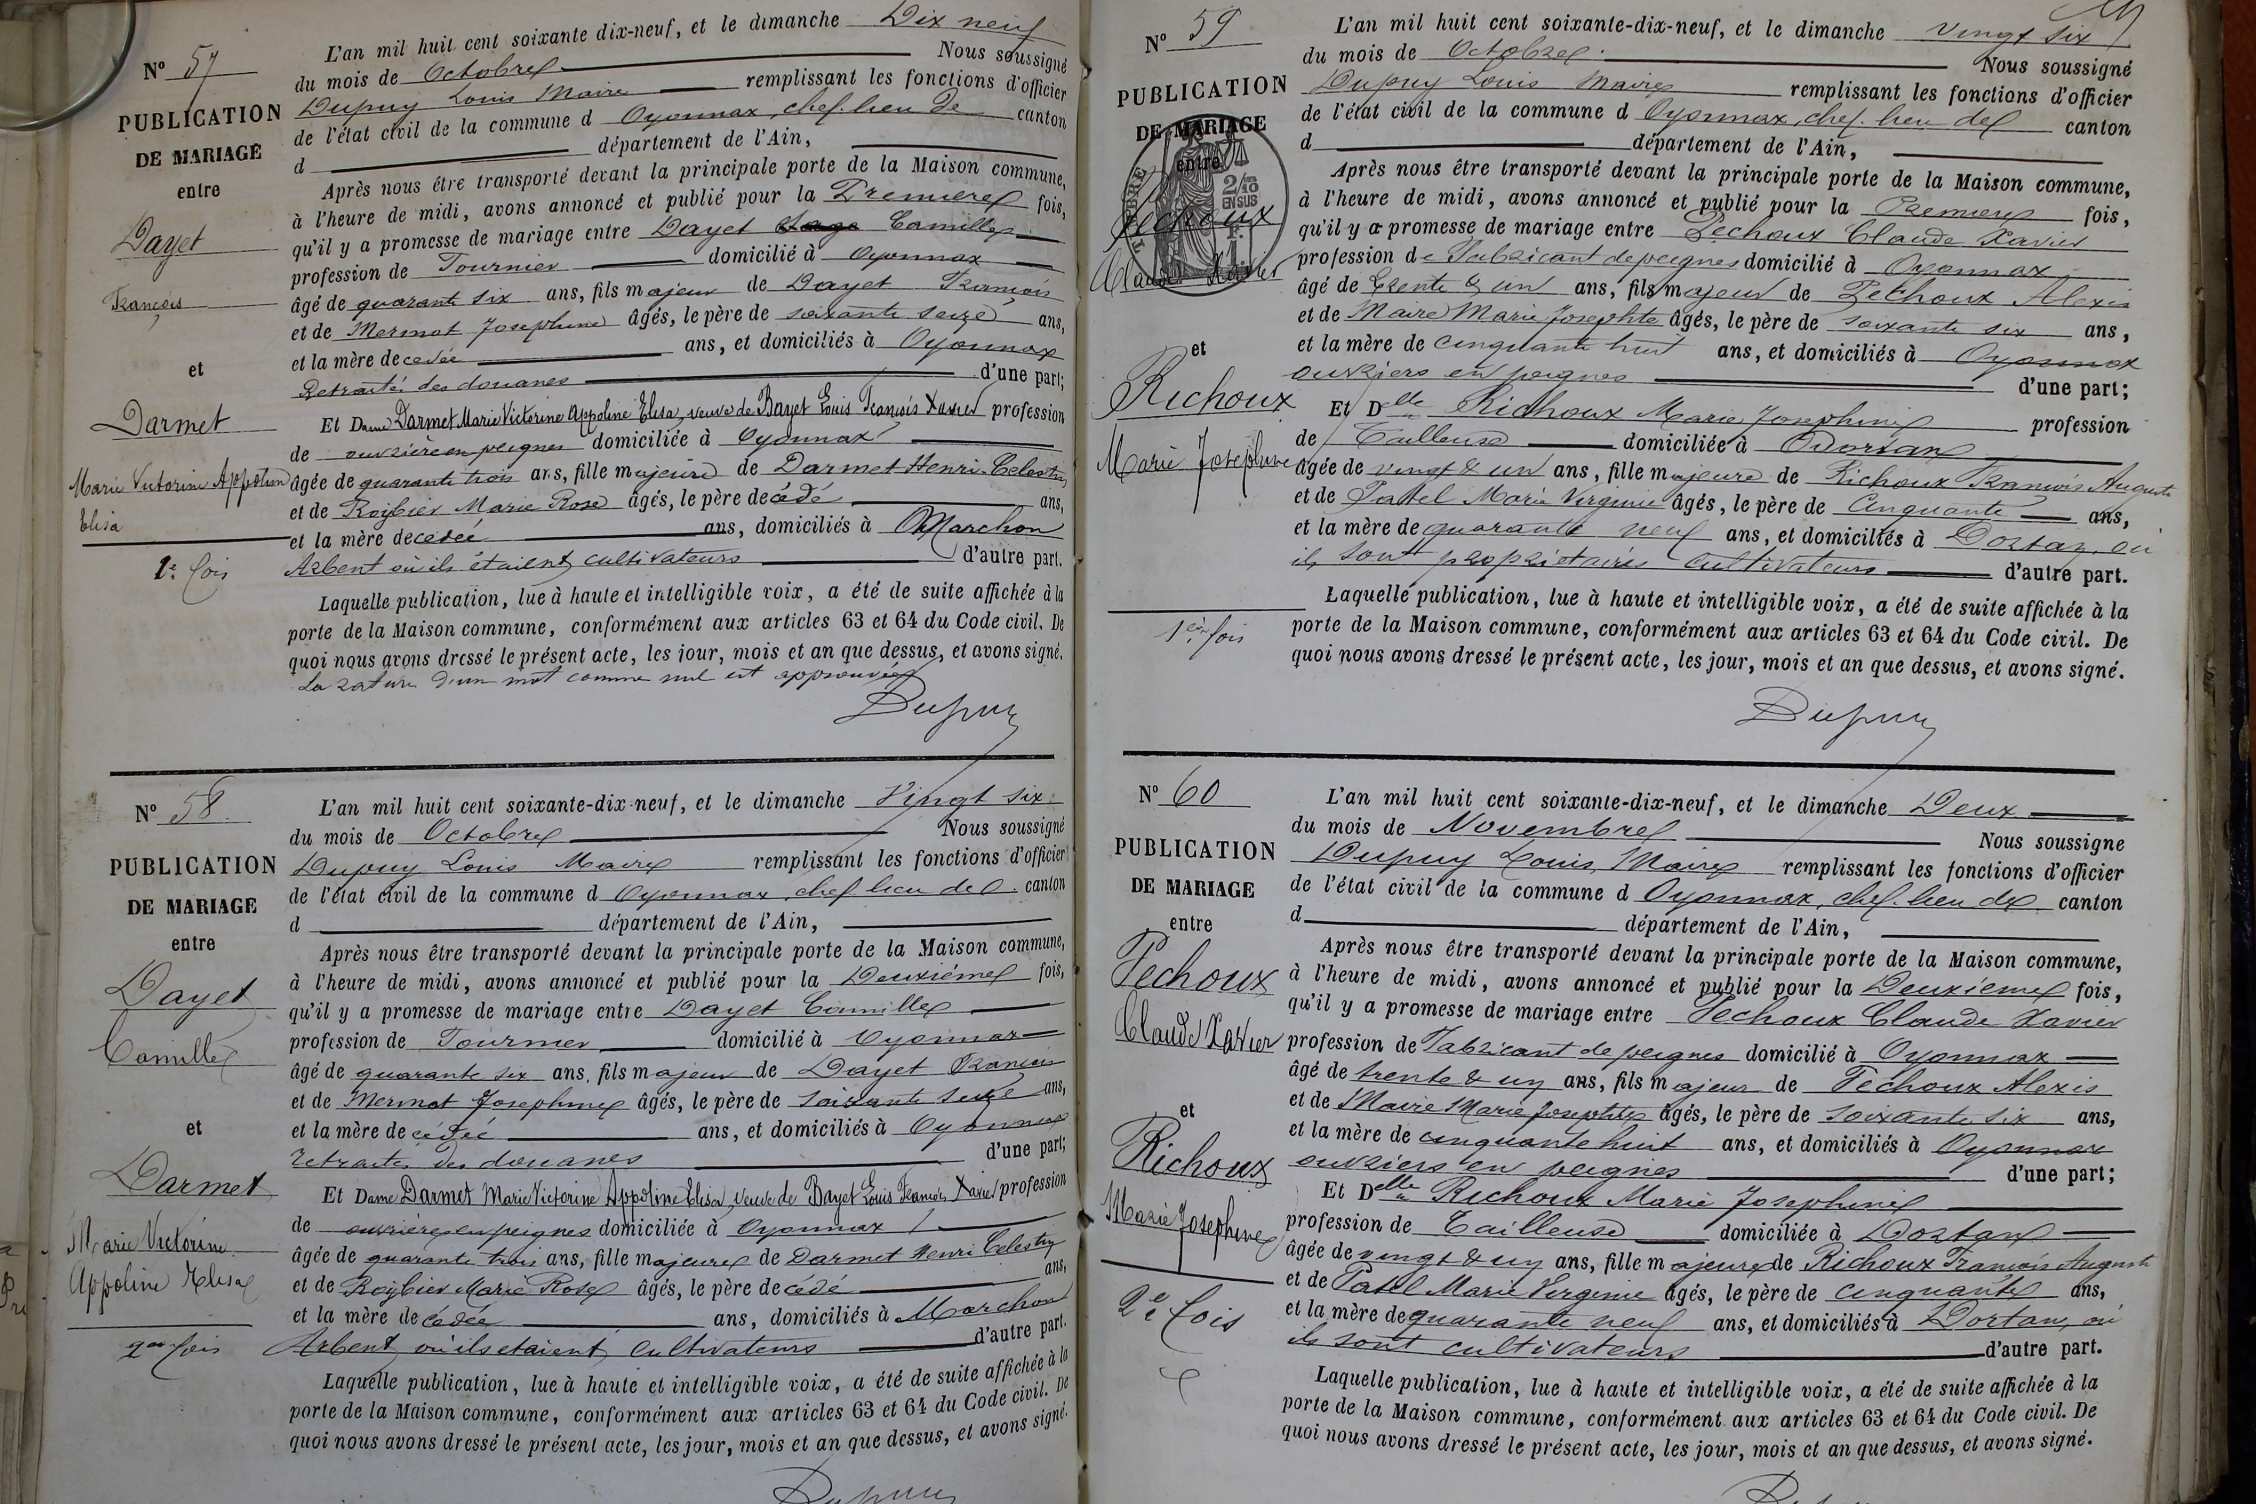 N° 57
PUBLICATION
DE MARIAGE
entre
Dayet
François
et
Darmet
Marie Victorine Appoline
Elisa
1e fois
L'an mil huit cent soixante dix-neuf, et le dimanche Dix neuf
du mois de Octobre Nous soussigné
Dupuy Louis Maire remplissant les fonctions d'officier
de l'état civil de la commune d Oyonnax, chef-lieu de canton
d département de l'Ain,
Après nous être transporté devant la principale porte de la Maison commune,
à l'heure de midi, avons annoncé et publié pour la Première fois,
qu'il y a promesse de mariage entre Dayet Camille
profession de Tournier domicilié à Oyonnax
âgé de quarante six ans, fils majeur de Dayet François
et de Mermet Josephine âgés, le père de soixante seize ans,
et la mère decedée ans, et domiciliés à Oyonnax
Retraité des douanes d'une part;
Et Dame Darmet Marie Victorine Appoline Elisa, veuve de Bayet Louis François Xavier profession
de ouvrière en peignes domiciliée à Oyonnax
âgée de quarante trois ans, fille majeure de Darmet Henri-Celestin
et de Roybier Marie Rose âgés, le père decédé ans,
et la mère decedée ans, domiciliés à Marchon
Arbent où ils étaient cultivateurs d'autre part.
Laquelle publication, lue à haute et intelligible voix, a été de suite affichée à la
porte de la Maison commune, conformément aux articles 63 et 64 du Code civil. De
quoi nous avons dressé le présent acte, les jour, mois et an que dessus, et avons signé.
La rature d'un mot comme nul est approuvée
Dupuy
N° 58
PUBLICATION
DE MARIAGE
entre
Dayet
Camille
et
Darmet
Marie Victorine
Appoline Elisa
2me fois
L'an mil huit cent soixante-dix-neuf, et le dimanche Vingt six
du mois de Octobre Nous soussigné
Dupuy Louis Maire remplissant les fonctions d'officier
de l'état civil de la commune d Oyonnax, chef lieu de canton
d département de l'Ain,
Après nous être transporté devant la principale porte de la Maison commune,
à l'heure de midi, avons annoncé et publié pour la Deuxième fois,
qu'il y a promesse de mariage entre Dayet Camille
profession de Tournier domicilié à Oyonnax
âgé de quarante six ans, fils majeur de Dayet François
et de Mermet Josephine âgés, le père de soixante seize ans,
et la mère de cédée ans, et domiciliés à Oyonnax
retraité des douanes d'une part;
Et Dame Darmet Marie Victorine Appoline Elisa, veuve de Bayet Louis François Xavier profession
de ouvrière en peignes domiciliée à Oyonnax
âgée de quarante trois ans, fille majeure de Darmet Henri Celestin
et de Roybier Marie Rose âgés, le père de cédé ans,
et la mère de cédée ans, domiciliés à Marchon
Arbent où ils etaient cultivateurs d'autre part.
Laquelle publication, lue à haute et intelligible voix, a été de suite affichée à la
porte de la Maison commune, conformément aux articles 63 et 64 du Code civil. De
quoi nous avons dressé le présent acte, les jour, mois et an que dessus, et avons signé.
Dupuy
N° 59
PUBLICATION
DE MARIAGE
entre
Pechoux
Claude Xavier
et
Richoux
Marie Josephine
1ère fois
TIMBRE
2/10
EN SUS
1 F.
L'an mil huit cent soixante-dix-neuf, et le dimanche vingt six
du mois de Octobre Nous soussigné
Dupuy Louis Maire remplissant les fonctions d'officier
de l'état civil de la commune d Oyonnax, chef-lieu de canton
d département de l'Ain,
Après nous être transporté devant la principale porte de la Maison commune,
à l'heure de midi, avons annoncé et publié pour la Premiere fois,
qu'il y a promesse de mariage entre Pechoux Claude Xavier
profession de Fabricant de peignes domicilié à Oyonnax
âgé de Trente & un ans, fils majeur de Pechoux Alexis
et de Maire Marie Josephte âgés, le père de soixante six ans,
et la mère de cinquante huit ans, et domiciliés à Oyonnax
ouvriers en peignes d'une part;
Et Delle Richoux Marie Josephine profession
de Tailleuse domiciliée à Dortan
âgée de vingt & un ans, fille majeure de Richoux François Auguste
et de Patel Marie Virginie âgés, le père de Cinquante ans,
et la mère de quarante neuf ans, et domiciliés à Dortan, où
ils sont propriétaires cultivateurs d'autre part.
Laquelle publication, lue à haute et intelligible voix, a été de suite affichée à la
porte de la Maison commune, conformément aux articles 63 et 64 du Code civil. De
quoi nous avons dressé le présent acte, les jour, mois et an que dessus, et avons signé.
Dupuy
N° 60
PUBLICATION
DE MARIAGE
entre
Pechoux
Claude Xavier
et
Richoux
Marie Josephine
2e fois
L'an mil huit cent soixante-dix-neuf, et le dimanche Deux
du mois de Novembre Nous soussigné
Dupuy Louis Maire remplissant les fonctions d'officier
de l'état civil de la commune d Oyonnax, chef-lieu de canton
d département de l'Ain,
Après nous être transporté devant la principale porte de la Maison commune,
à l'heure de midi, avons annoncé et publié pour la Deuxieme fois,
qu'il y a promesse de mariage entre Pechoux Claude Xavier
profession de Fabricant de peignes domicilié à Oyonnax
âgé de trente & un ans, fils majeur de Pechoux Alexis
et de Maire Marie Josephte âgés, le père de soixante six ans,
et la mère de cinquante huit ans, et domiciliés à Oyonnax
ouvriers en peignes d'une part;
Et Delle Richoux Marie Josephine
profession de Tailleuse domiciliée à Dortan
âgée de vingt & un ans, fille majeure de Richoux François Auguste
et de Patel Marie Virginie âgés, le père de cinquante ans,
et la mère de quarante neuf ans, et domiciliés à Dortan, où
ils sont cultivateurs d'autre part.
Laquelle publication, lue à haute et intelligible voix, a été de suite affichée à la
porte de la Maison commune, conformément aux articles 63 et 64 du Code civil. De
quoi nous avons dressé le présent acte, les jour, mois et an que dessus, et avons signé.